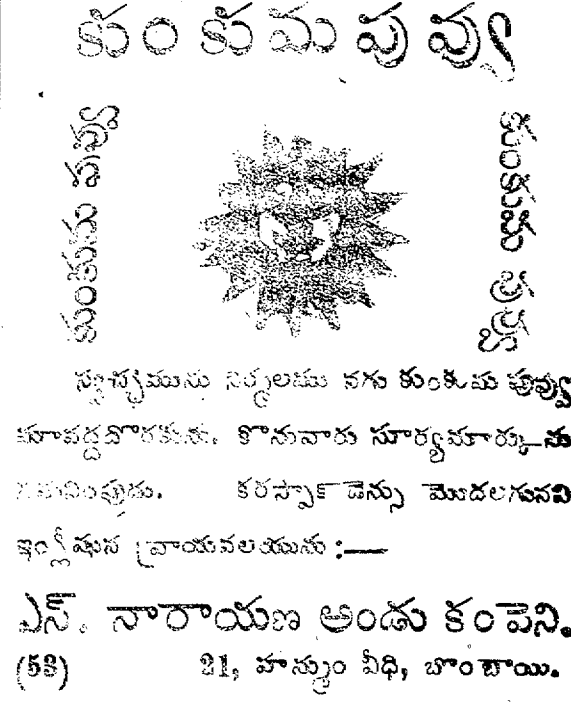 కుంకుమపువ్వు
కుంకుమ పువ్వు
కుంకుమ పువ్వు
స్వచ్ఛమును నిర్మలమును నగు కుంకుమ పువ్వు
మావద్దదొరకును. కొనువారు సూర్యమార్కును
గమనింపుడు. కరస్పాండెన్సు మొదలగునవి
ఇంగ్లీషున వ్రాయవలయును :—
ఎస్. నారాయణ అండు కంపెని.
(53) 21, హన్మం వీధి, బొంబాయి.